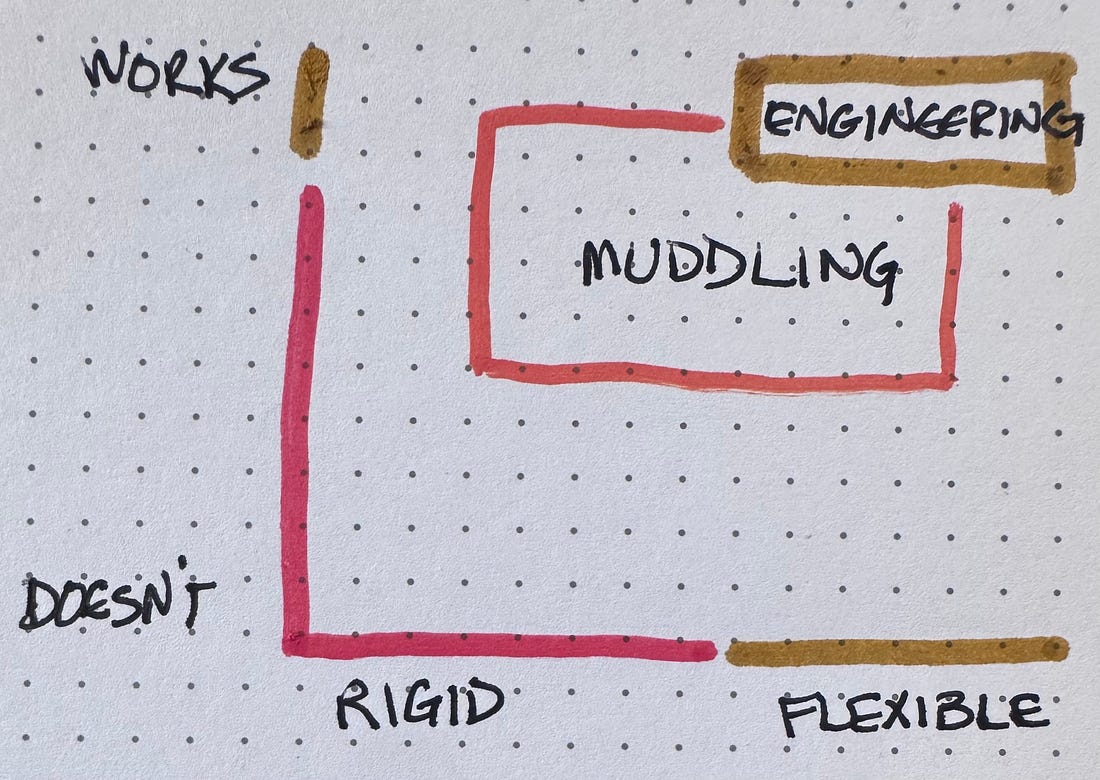 WORKS
ENGINEERING
MUDDLING
DOESN'T
RIGID
FLEXIBLE